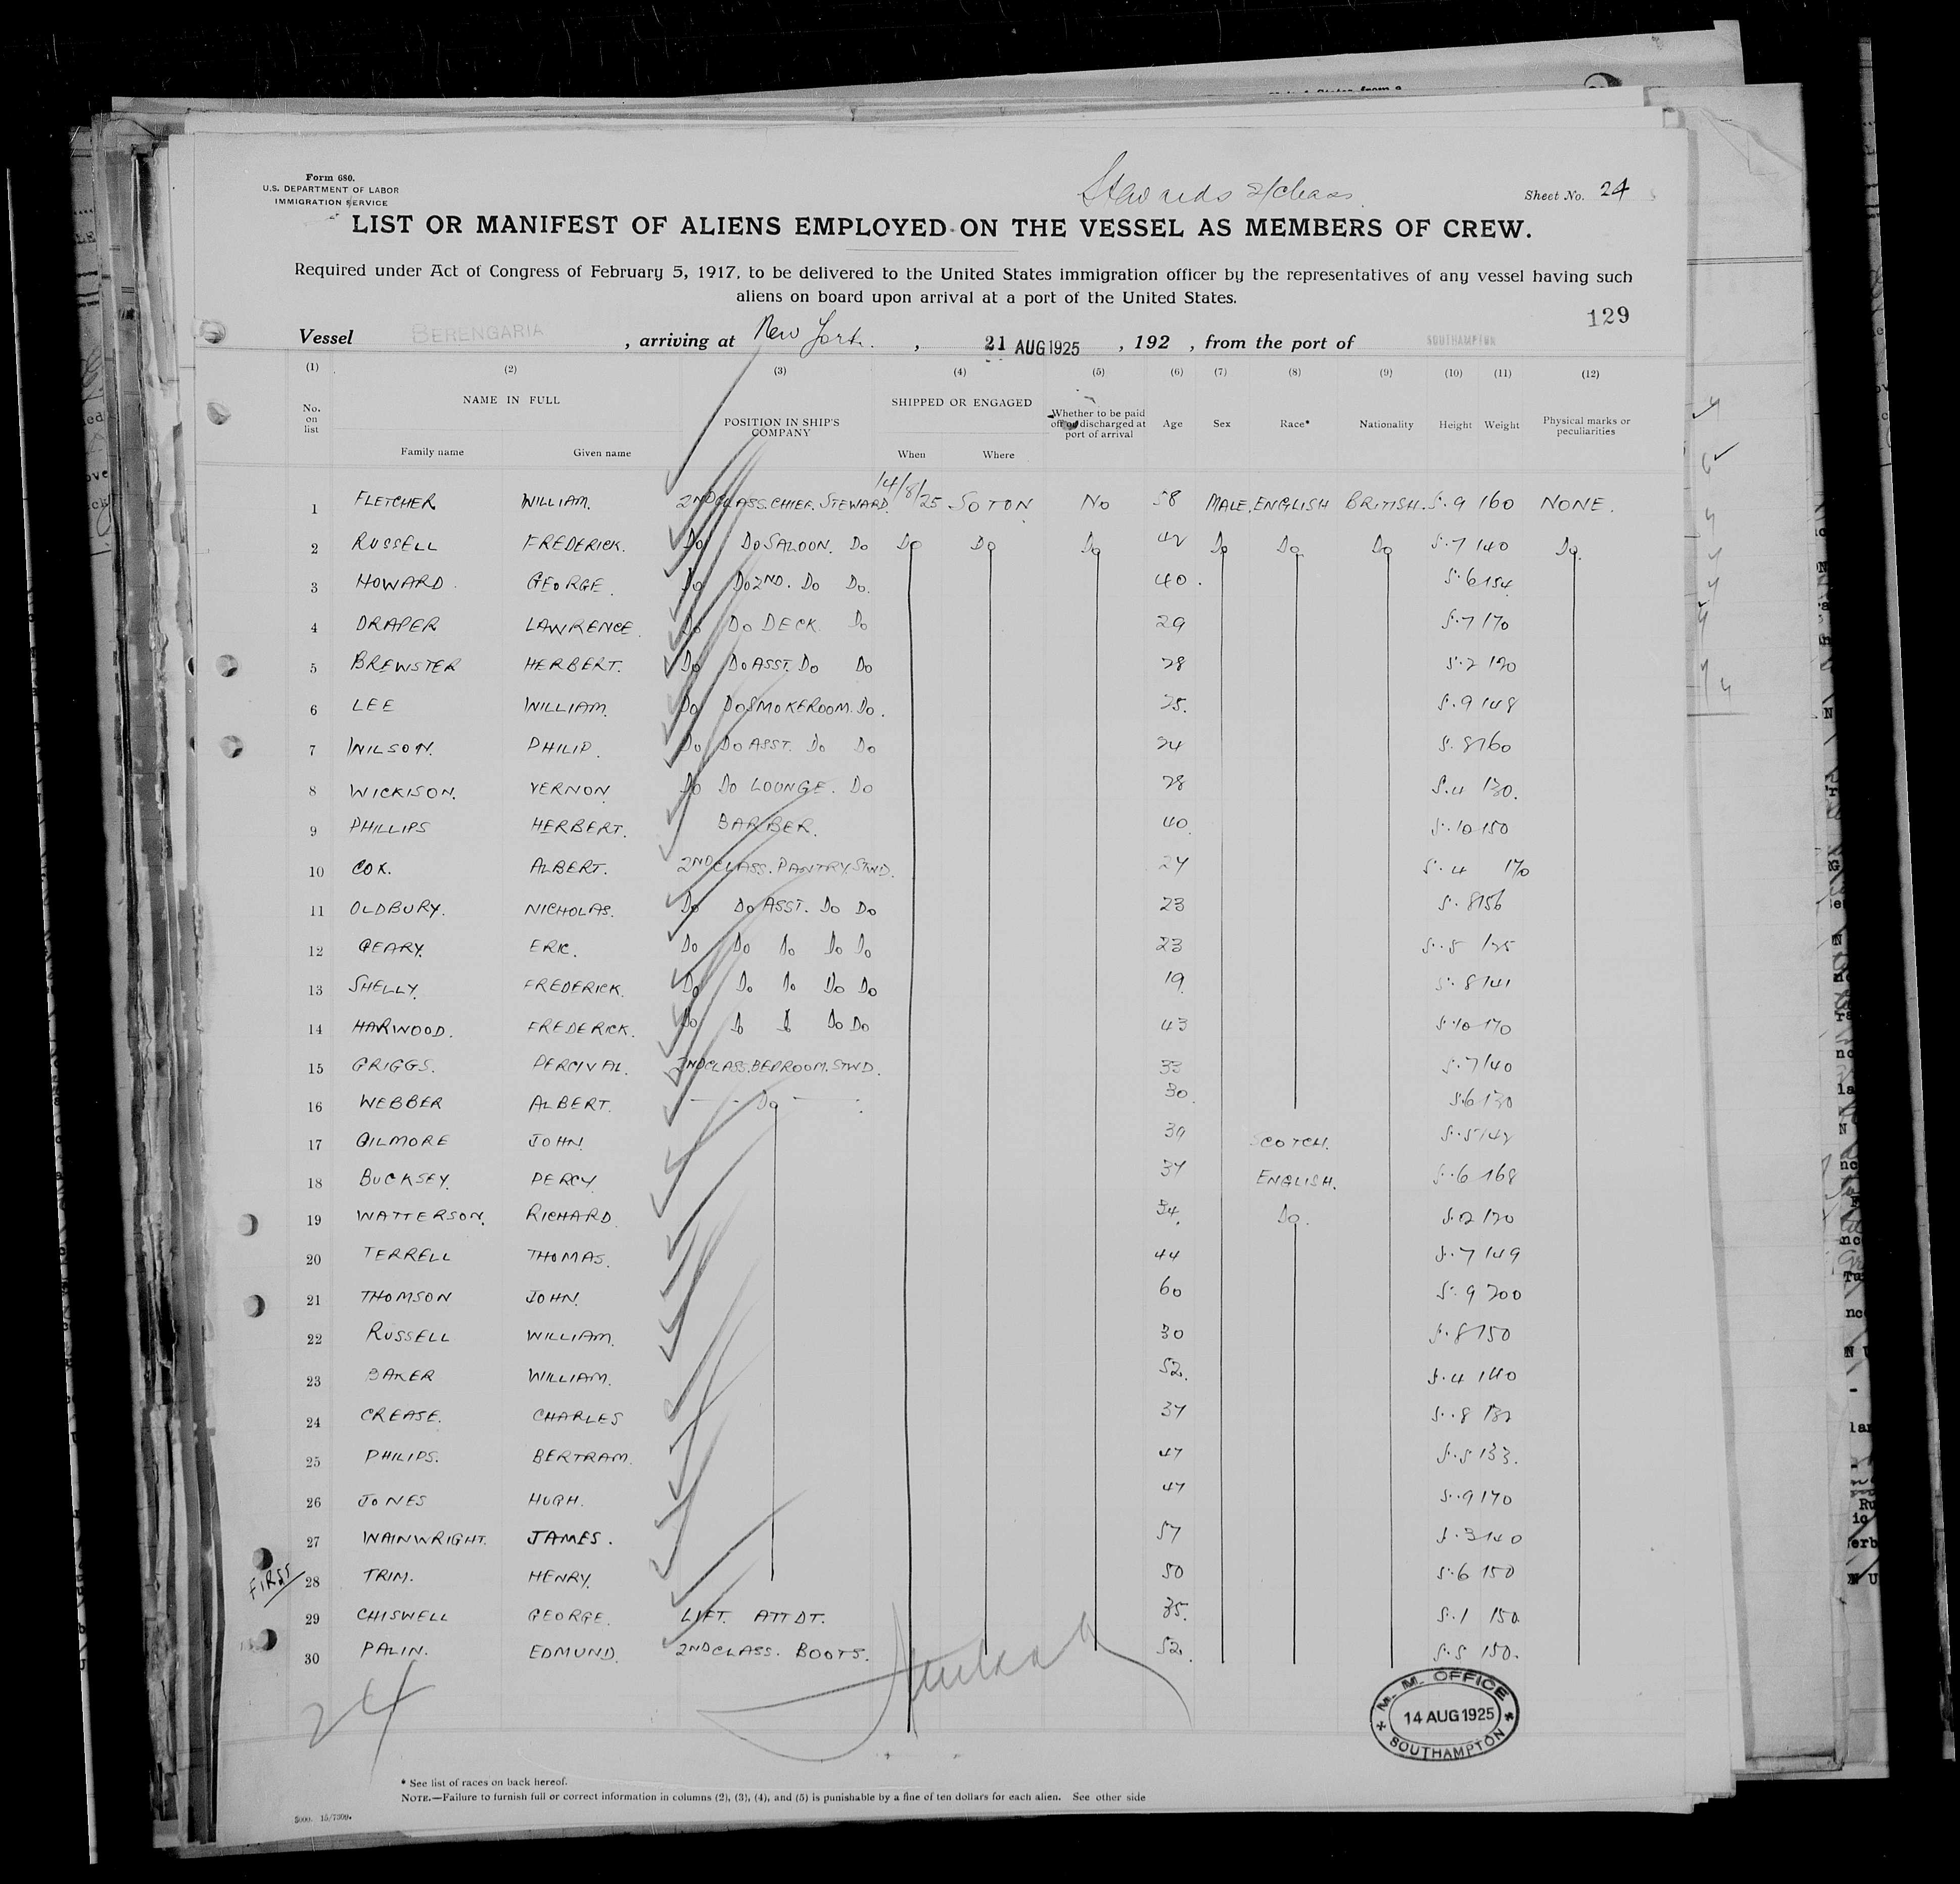 Form 680.
U.S. DEPARTMENT OF LABOR
IMMIGRATION SERVICE
Stewards 2/class.
Sheet No. 24
LIST OR MANIFEST OF ALIENS EMPLOYED ON THE VESSEL AS MEMBERS OF CREW.
Required under Act of Congress of February 5, 1917, to be delivered to the United States immigration officer by the representatives of any vessel having such
aliens on board upon arrival at a port of the United States.
129
Vessel BERENGARIA, arriving at New York., 21 AUG 1925, 192 , from the port of SOUTHAMPTON
(1) (2) (3) (4) (5) (6) (7) (8) (9) (10) (11) (12)
No. on list NAME IN FULL POSITION IN SHIP'S COMPANY SHIPPED OR ENGAGED Whether to be paid off or discharged at port of arrival Age Sex Race* Nationality Height Weight Physical marks or peculiarities
Family name Given name When Where
1 FLETCHER WILLIAM. 2ND CLASS. CHIEF. STEWARD. 14/8/25 SOTON No 58 MALE. ENGLISH BRITISH. 5.9 160 NONE.
2 RUSSELL FREDERICK. Do Do SALOON. Do Do Do Do 42 Do Do Do 5.7 140 Do.
3 HOWARD. GEORGE. Do Do 2ND. Do Do. 40. 5.6 154
4 DRAPER LAWRENCE. Do Do DECK. Do 29 5.7 170
5 BREWSTER HERBERT. Do Do ASST. Do Do 28 5.2 120
6 LEE WILLIAM. Do Do SMOKEROOM. Do. 25. 5.9 148
7 WILSON. PHILIP. Do Do ASST. Do Do 24 5.8 160
8 WICKISON. VERNON. Do Do LOUNGE. Do 28 5.4 130.
9 PHILLIPS HERBERT. BARBER. 40. 5.10 150
10 COX. ALBERT. 2ND CLASS. PANTRY. STWD. 27 5.4 170
11 OLDBURY. NICHOLAS. Do Do ASST. Do Do 23 5.8 156
12 GEARY. ERIC. Do Do Do Do Do 23 5.5 125
13 SHELLY. FREDERICK. Do Do Do Do Do 19. 5.8 141
14 HARWOOD. FREDERICK. Do Do Do Do Do 43 5.10 170
15 GRIGGS. PERCIVAL. 2ND CLASS. BEDROOM. STWD. 33 5.7 140
16 WEBBER ALBERT. Do 30. 5.6 130
17 GILMORE JOHN. 39 SCOTCH. 5.5 148
18 BUCKSEY. PERCY. 37 ENGLISH. 5.6 168
19 WATTERSON. RICHARD. 34. Do. 5.2 120
20 TERRELL THOMAS. 44 5.7 149
21 THOMSON JOHN. 60 5.9 200
22 RUSSELL WILLIAM. 30 5.8 150
23 BAKER WILLIAM. 52. 5.4 140
24 CREASE. CHARLES 37 5.8 132
25 PHILIPS. BERTRAM. 47 5.5 133.
26 JONES HUGH. 47 5.9 170
27 WAINWRIGHT. JAMES. 57 5.3 140
FIRST
28 TRIM. HENRY. 50 5.6 150
29 CHISWELL GEORGE. LIFT. ATTDT. 35. 5.1 150
30 PALIN. EDMUND. 2ND CLASS. BOOTS. 52. 5.5 150.
24
M. M. OFFICE
14 AUG 1925
SOUTHAMPTON
* See list of races on back hereof.
NOTE.—Failure to furnish full or correct information in columns (2), (3), (4), and (5) is punishable by a fine of ten dollars for each alien. See other side